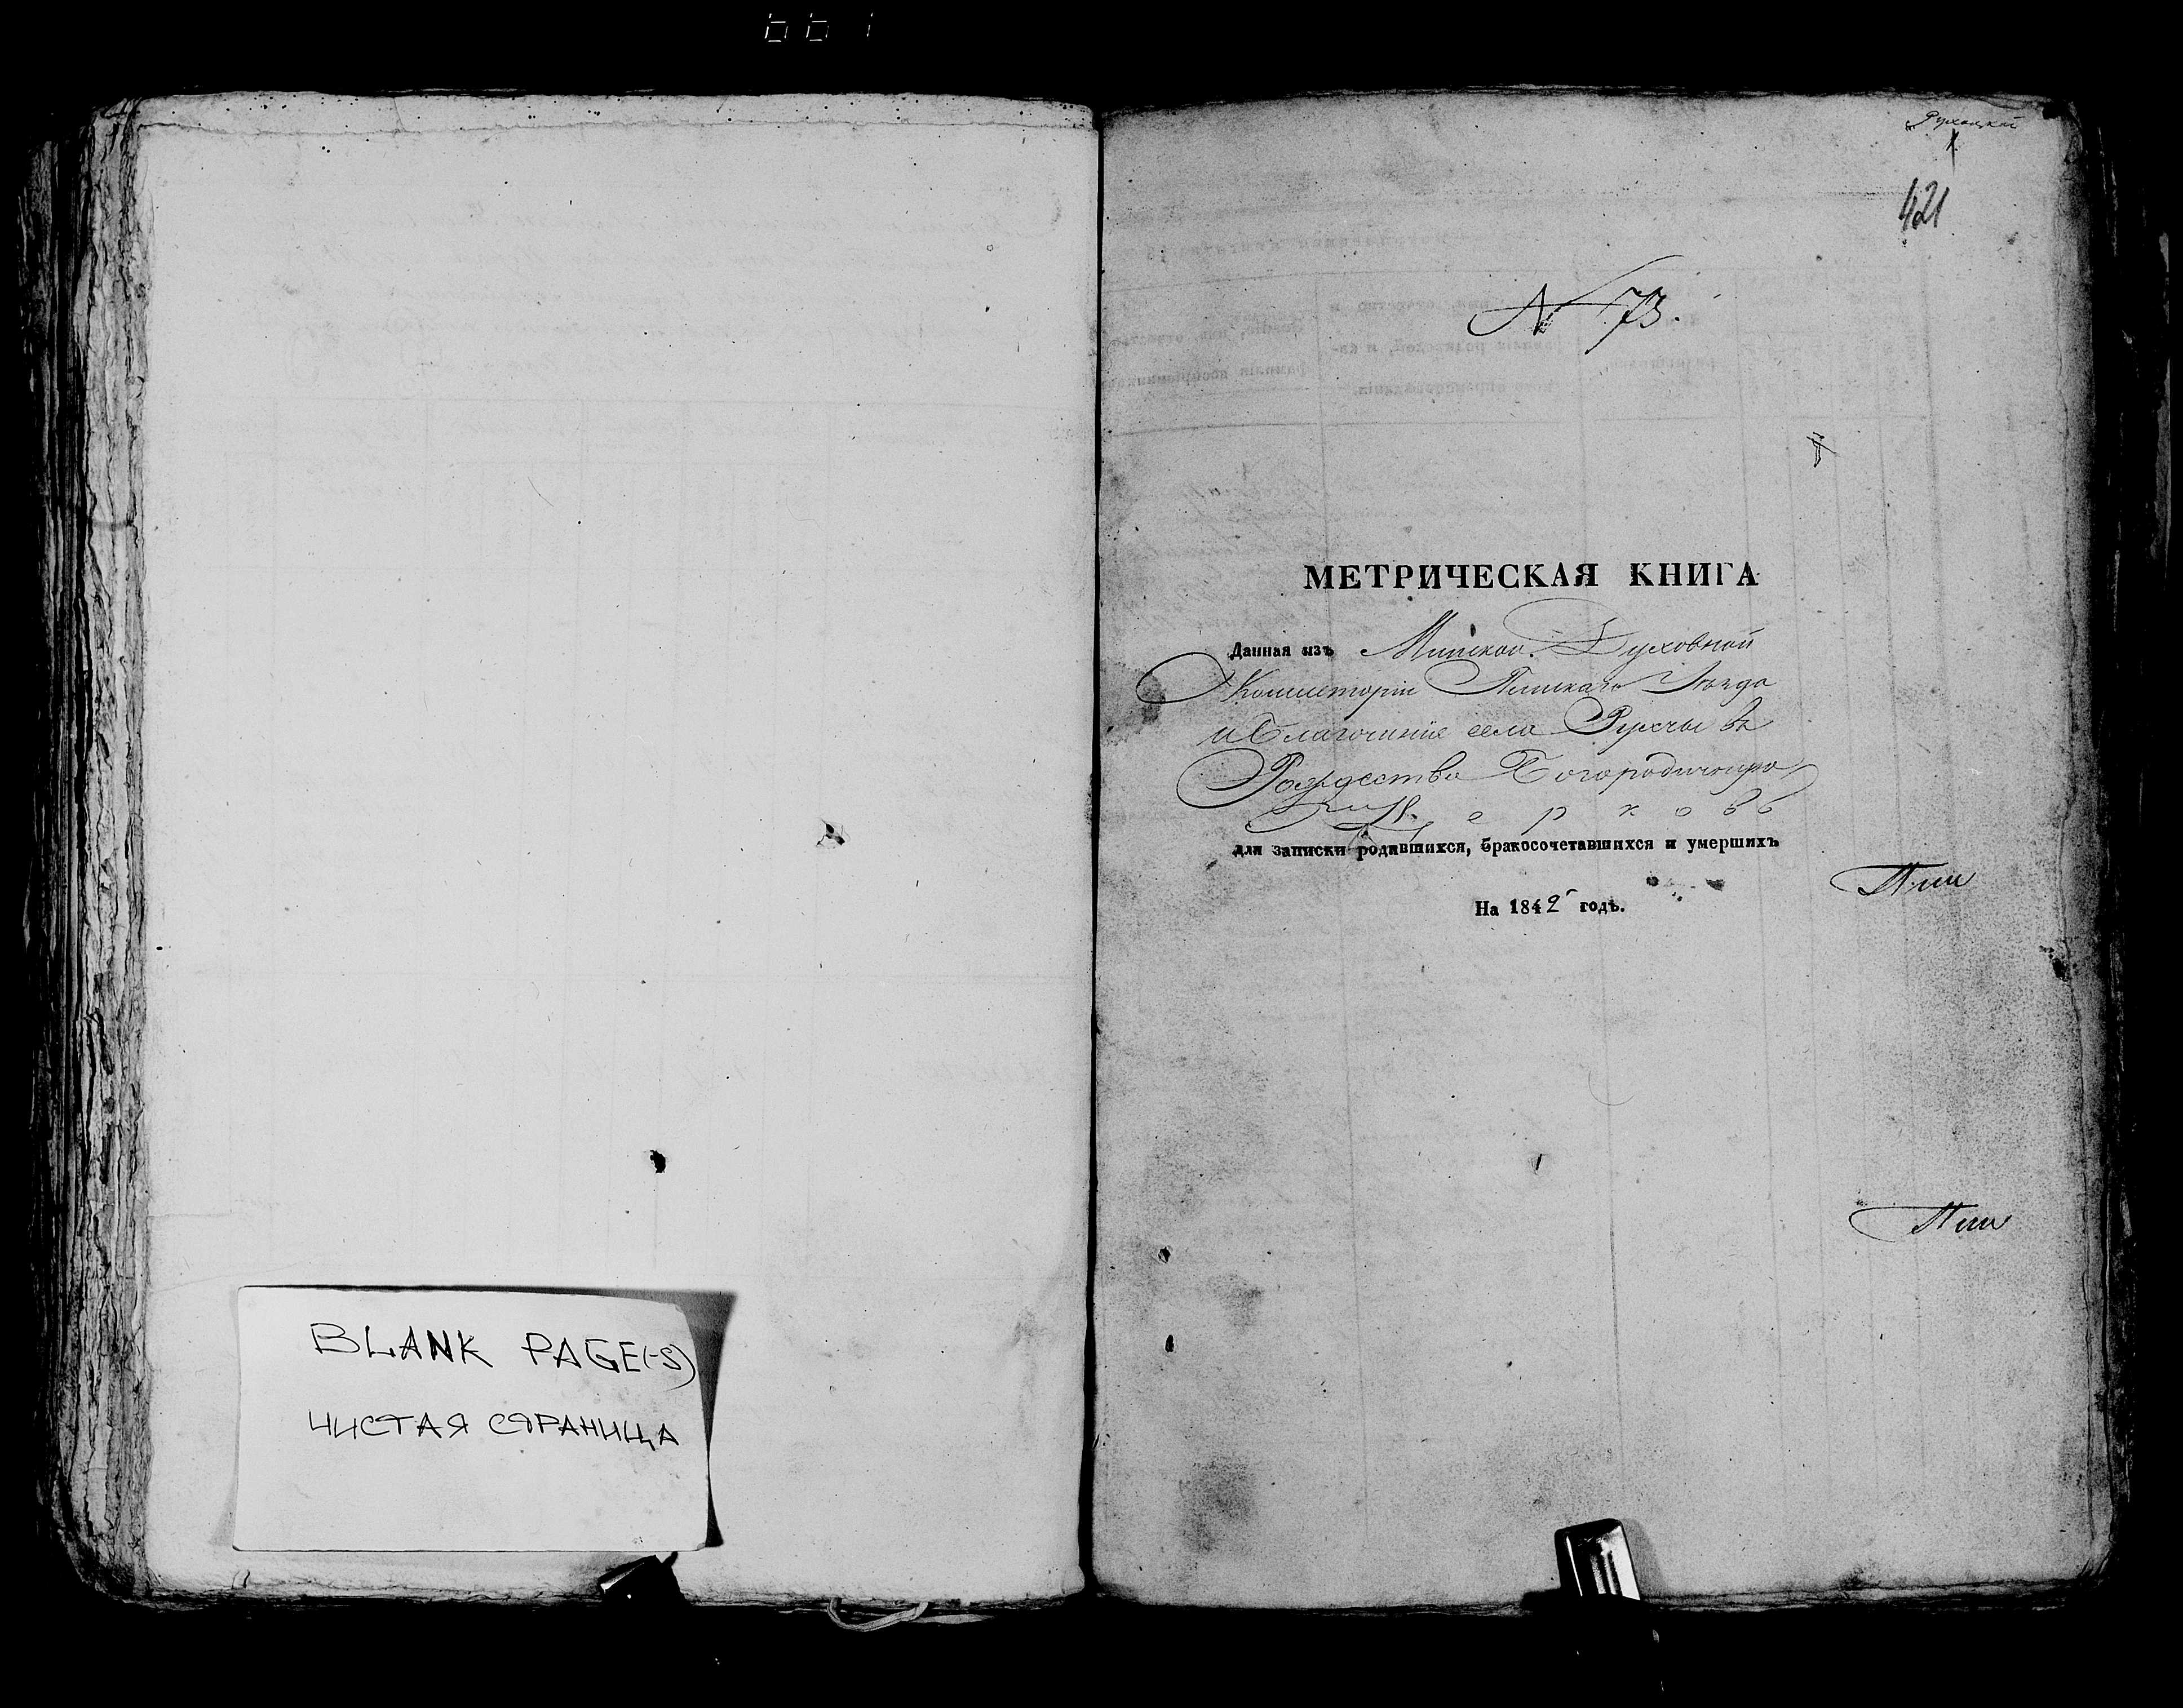 661
BLANK PAGE(-S)
ЧИСТАЯ СТРАНИЦА
421
N 73.
МЕТРИЧЕСКАЯ КНИГА
Данная изъ Минской Духовной
Консисторіи Пинскаго Уѣзда
и Благочинія села Рухчы въ
Рождество Богородичную
Церковь
для записки родившихся, бракосочетавшихся и умершихъ
На 1842 годъ.